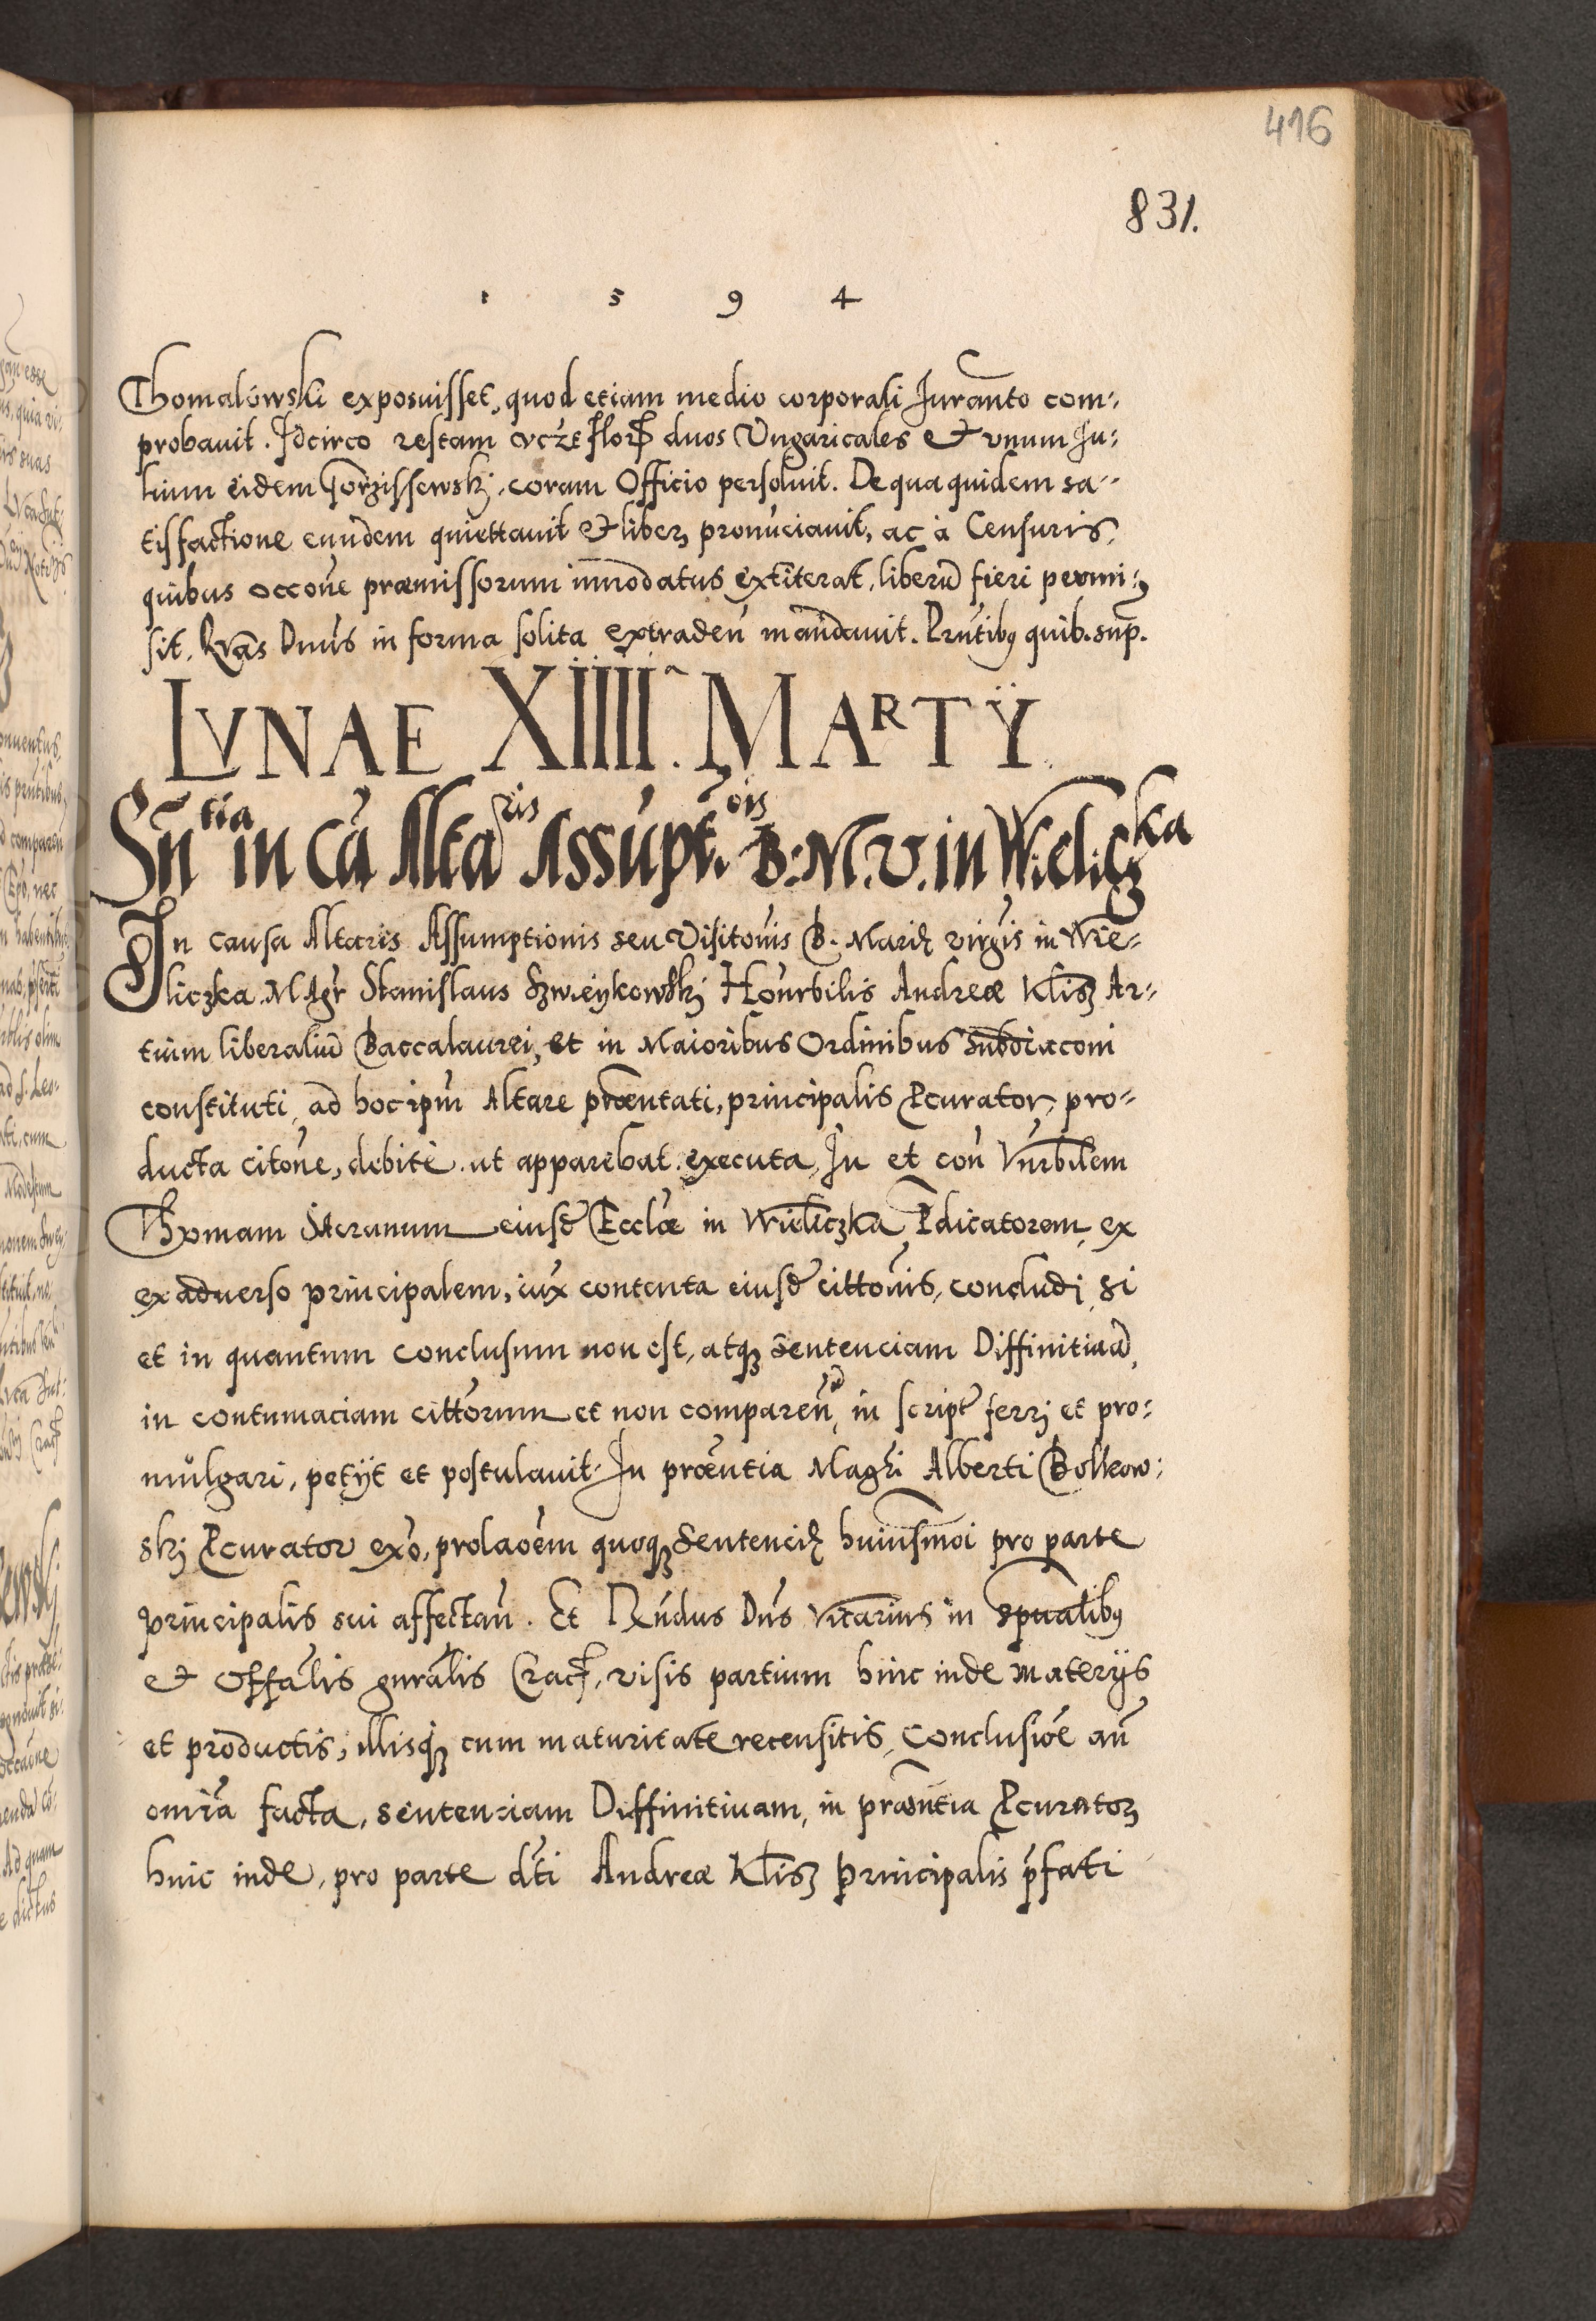 416
831.
1 5 9 4
Thomalówski exposuisset, quod etiam medio corporali Juranto com-
probauit. Idcirco restam duos Ungaricales et vnum Ju-
lium eidem Gorzissewskj, coram Officio persoluit. De qua quidem sa-
tisfactione eundem quiettauit et liberż pronūciauit, ac à Censuris,
quibus occone præmissorum innodatus extiterat, liberū fieri permi-
sit. Dnus in forma solita extradeń mandauit. Pñtibꝫ quib. sup.
LVNAE XIIII.ᵃ MARTY.
Snᵗⁱᵃ in cā Altaʳⁱˢ Assūpt.ᵒⁱˢ B: M. V. in Wieliczᵏᵃ
In causa Altaris Assumptionis seu Visitonis B. Mariæ virgis in Wie-
liczka. M Agr Stanislaus Szweykowskj Honrbilis Andreæ Klisz Ar-
tium liberaliū Baccalaurei, et in Maioribus Ordinibus Subdiaconi
constituti, ad hoc ipm Altare præntati, principalis Pcurator, pro-
ducta citone, debitè ut apparebat executa, In et con Vnrbilem
Thomam eiusd Eccliæ in Wieliczka, Pdicatorem, ex
ex aduerso principalem, iux contenta eiusd cittonis, concludj, si
et in quantum conclusum non est, atqꝫ Sentenciam Diffinitiuā,
in contumaciam cittorum et non compareñ, in script ferrj et pro-
mulgari, petijt et postulauit. In præntia Magri Alberti Bolkow-
skj Pcurator exo, prolaoem quoqꝫ Sentenciæ huiusmoi pro parte
principalis sui affectan. Et Rndus Dns Vicarius in Spualibꝫ
et Offalis gnralis Crac, visis partium hinc inde materijs
et productis, illisqꝫ cum maturitate recensitis, Conclusioe an
omia facta, sentenciam Diffinitiuam, in præntia Pcuratorꝫ
hinc inde, pro parte dti Andreæ Klisz principalis pfati